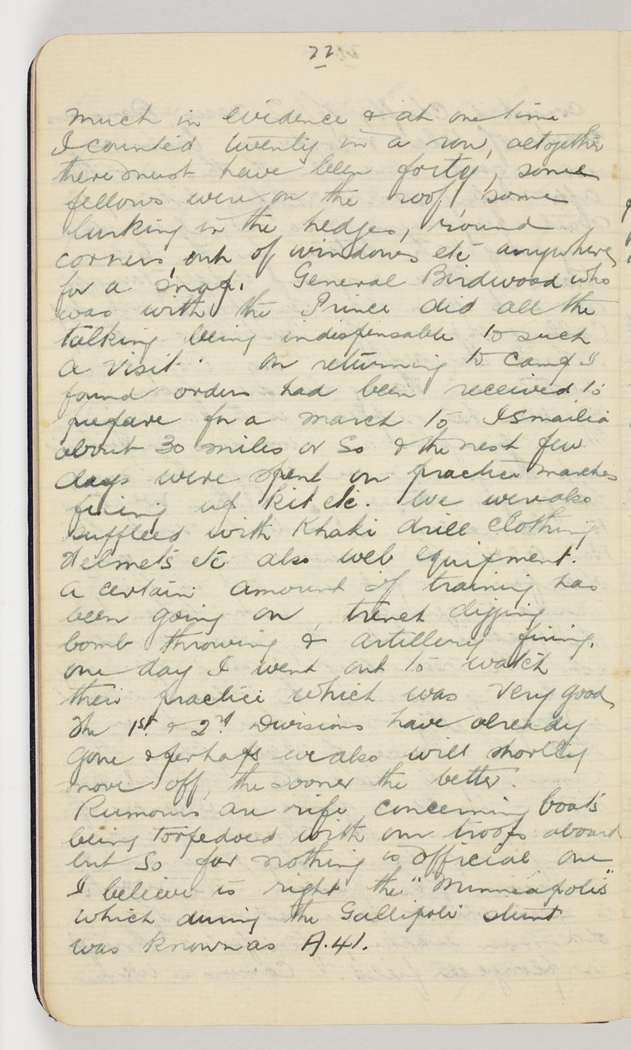 22
much in evidence & at one time
I counted twenty in a row, altogether
there must have been forty, some
fellows were on the roof, some
lurking in the hedges, round
corners out of windows etc anywhere
for a snap. General Birdwood who
was with the Prince did all the
talking being indispensable to such
a visit. On returning to camp I
found orders had been received to
prepare for a march to Ismailia
about 30 miles or so & the next few
days were spent on practice marches
fixing up kit etc. We were also
supplied with Khaki drill clothing
Helmets etc also web equipment.
A certain amount of training has
been going on, trench digging
bomb throwing & artillery firing.
one day I went out to watch
their practice which was very good,
The 1st & 2nd Divisions have already
gone & perhaps we also will shortly
move off, the sooner the better.
Rumours are rife concerning boats
being torpedoed with our troops aboard
but so far nothing is official one
I believe is right the "Minneapolis"
which during the Gallipoli stunt
was known as A.41.